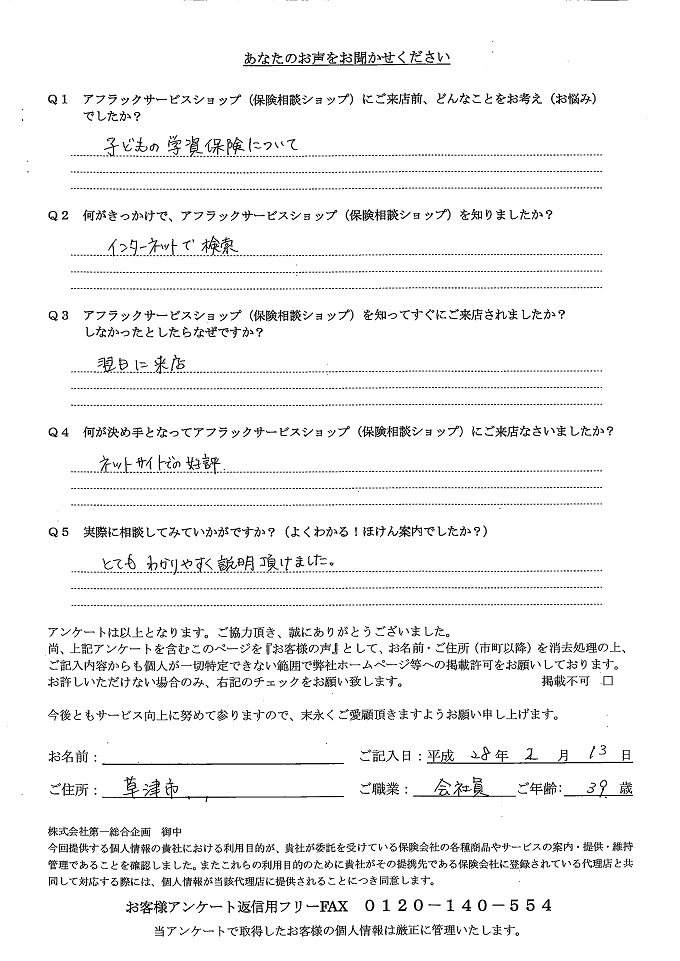 あなたのお声をお聞かせください
Q1 アフラックサービスショップ（保険相談ショップ）にご来店前、どんなことをお考え（お悩み）
でしたか？
子どもの学資保険について
Q2 何がきっかけで、アフラックサービスショップ（保険相談ショップ）を知りましたか？
インターネットで検索
Q3 アフラックサービスショップ（保険相談ショップ）を知ってすぐにご来店されましたか？
しなかったとしたらなぜですか？
翌日に来店
Q4 何が決め手となってアフラックサービスショップ（保険相談ショップ）にご来店なさいましたか？
ネットサイトでの好評
Q5 実際に相談してみていかがですか？（よくわかる！ほけん案内でしたか？）
とてもわかりやすく説明頂けました。
アンケートは以上となります。ご協力頂き、誠にありがとうございました。
尚、上記アンケートを含むこのページを『お客様の声』として、お名前・ご住所（市町以降）を消去処理の上、
ご記入内容からも個人が一切特定できない範囲で弊社ホームページ等への掲載許可をお願いしております。
お許しいただけない場合のみ、右記のチェックをお願い致します。 掲載不可 □
今後ともサービス向上に努めて参りますので、末永くご愛顧頂きますようお願い申し上げます。
お名前： ご記入日：平成 28年 2 月 13 日
ご住所： 草津市 ご職業： 会社員 ご年齢： 39 歳
株式会社第一総合企画 御中
今回提供する個人情報の貴社における利用目的が、貴社が委託を受けている保険会社の各種商品やサービスの案内・提供・維持
管理であることを確認しました。またこれらの利用目的のために貴社がその提携先である保険会社に登録されている代理店と共
同して対応する際には、個人情報が当該代理店に提供されることにつき同意します。
お客様アンケート返信用フリーFAX 0120－140－554
当アンケートで取得したお客様の個人情報は厳正に管理いたします。